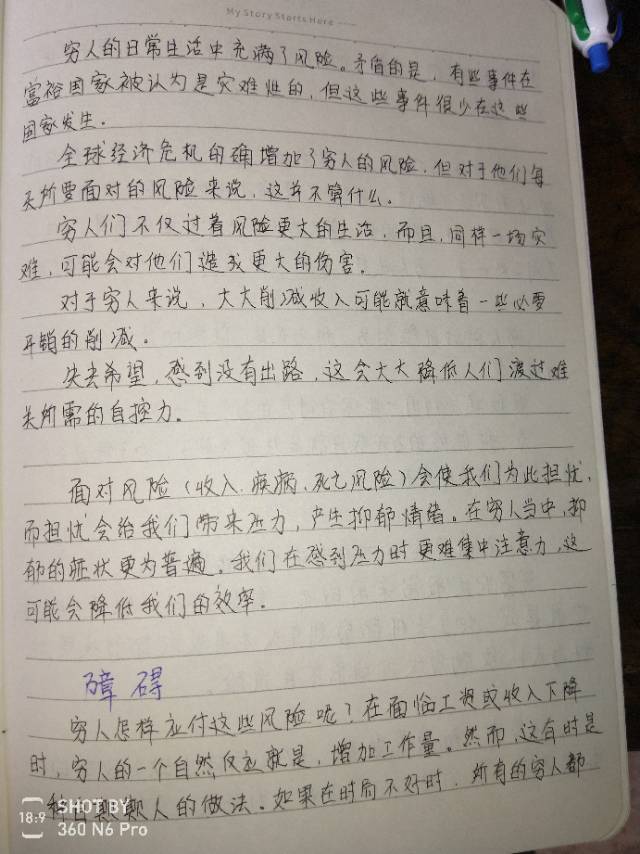 My Story Starts Here
穷人的日常生活中充满了风险。矛盾的是，有些事件在
富裕国家被认为是灾难性的，但这些事件很少在这些
国家发生。
全球经济危机的确增加了穷人的风险，但对于他们每
天所要面对的风险来说，这并不算什么。
穷人们不仅过着风险更大的生活，而且，同样一场灾
难，可能会对他们造成更大的伤害。
对于穷人来说，大大削减收入可能就意味着一些必要
开销的削减。
失去希望，感到没有出路，这会大大降低人们渡过难
关所需的自控力。
面对风险（收入、疾病、死亡风险）会使我们为此担忧，
而担忧会给我们带来压力，产生抑郁情绪。在穷人当中，抑
郁的症状更为普遍，我们在感到压力时更难集中注意力，这
可能会降低我们的效率。
障碍
穷人怎样应付这些风险呢？在面临工资或收入下降
时，穷人的一个自然反应就是，增加工作量。然而，这有时是
种自欺欺人的做法。如果在时局不好时，所有的穷人都
18:9 SHOT BY
360 N6 Pro